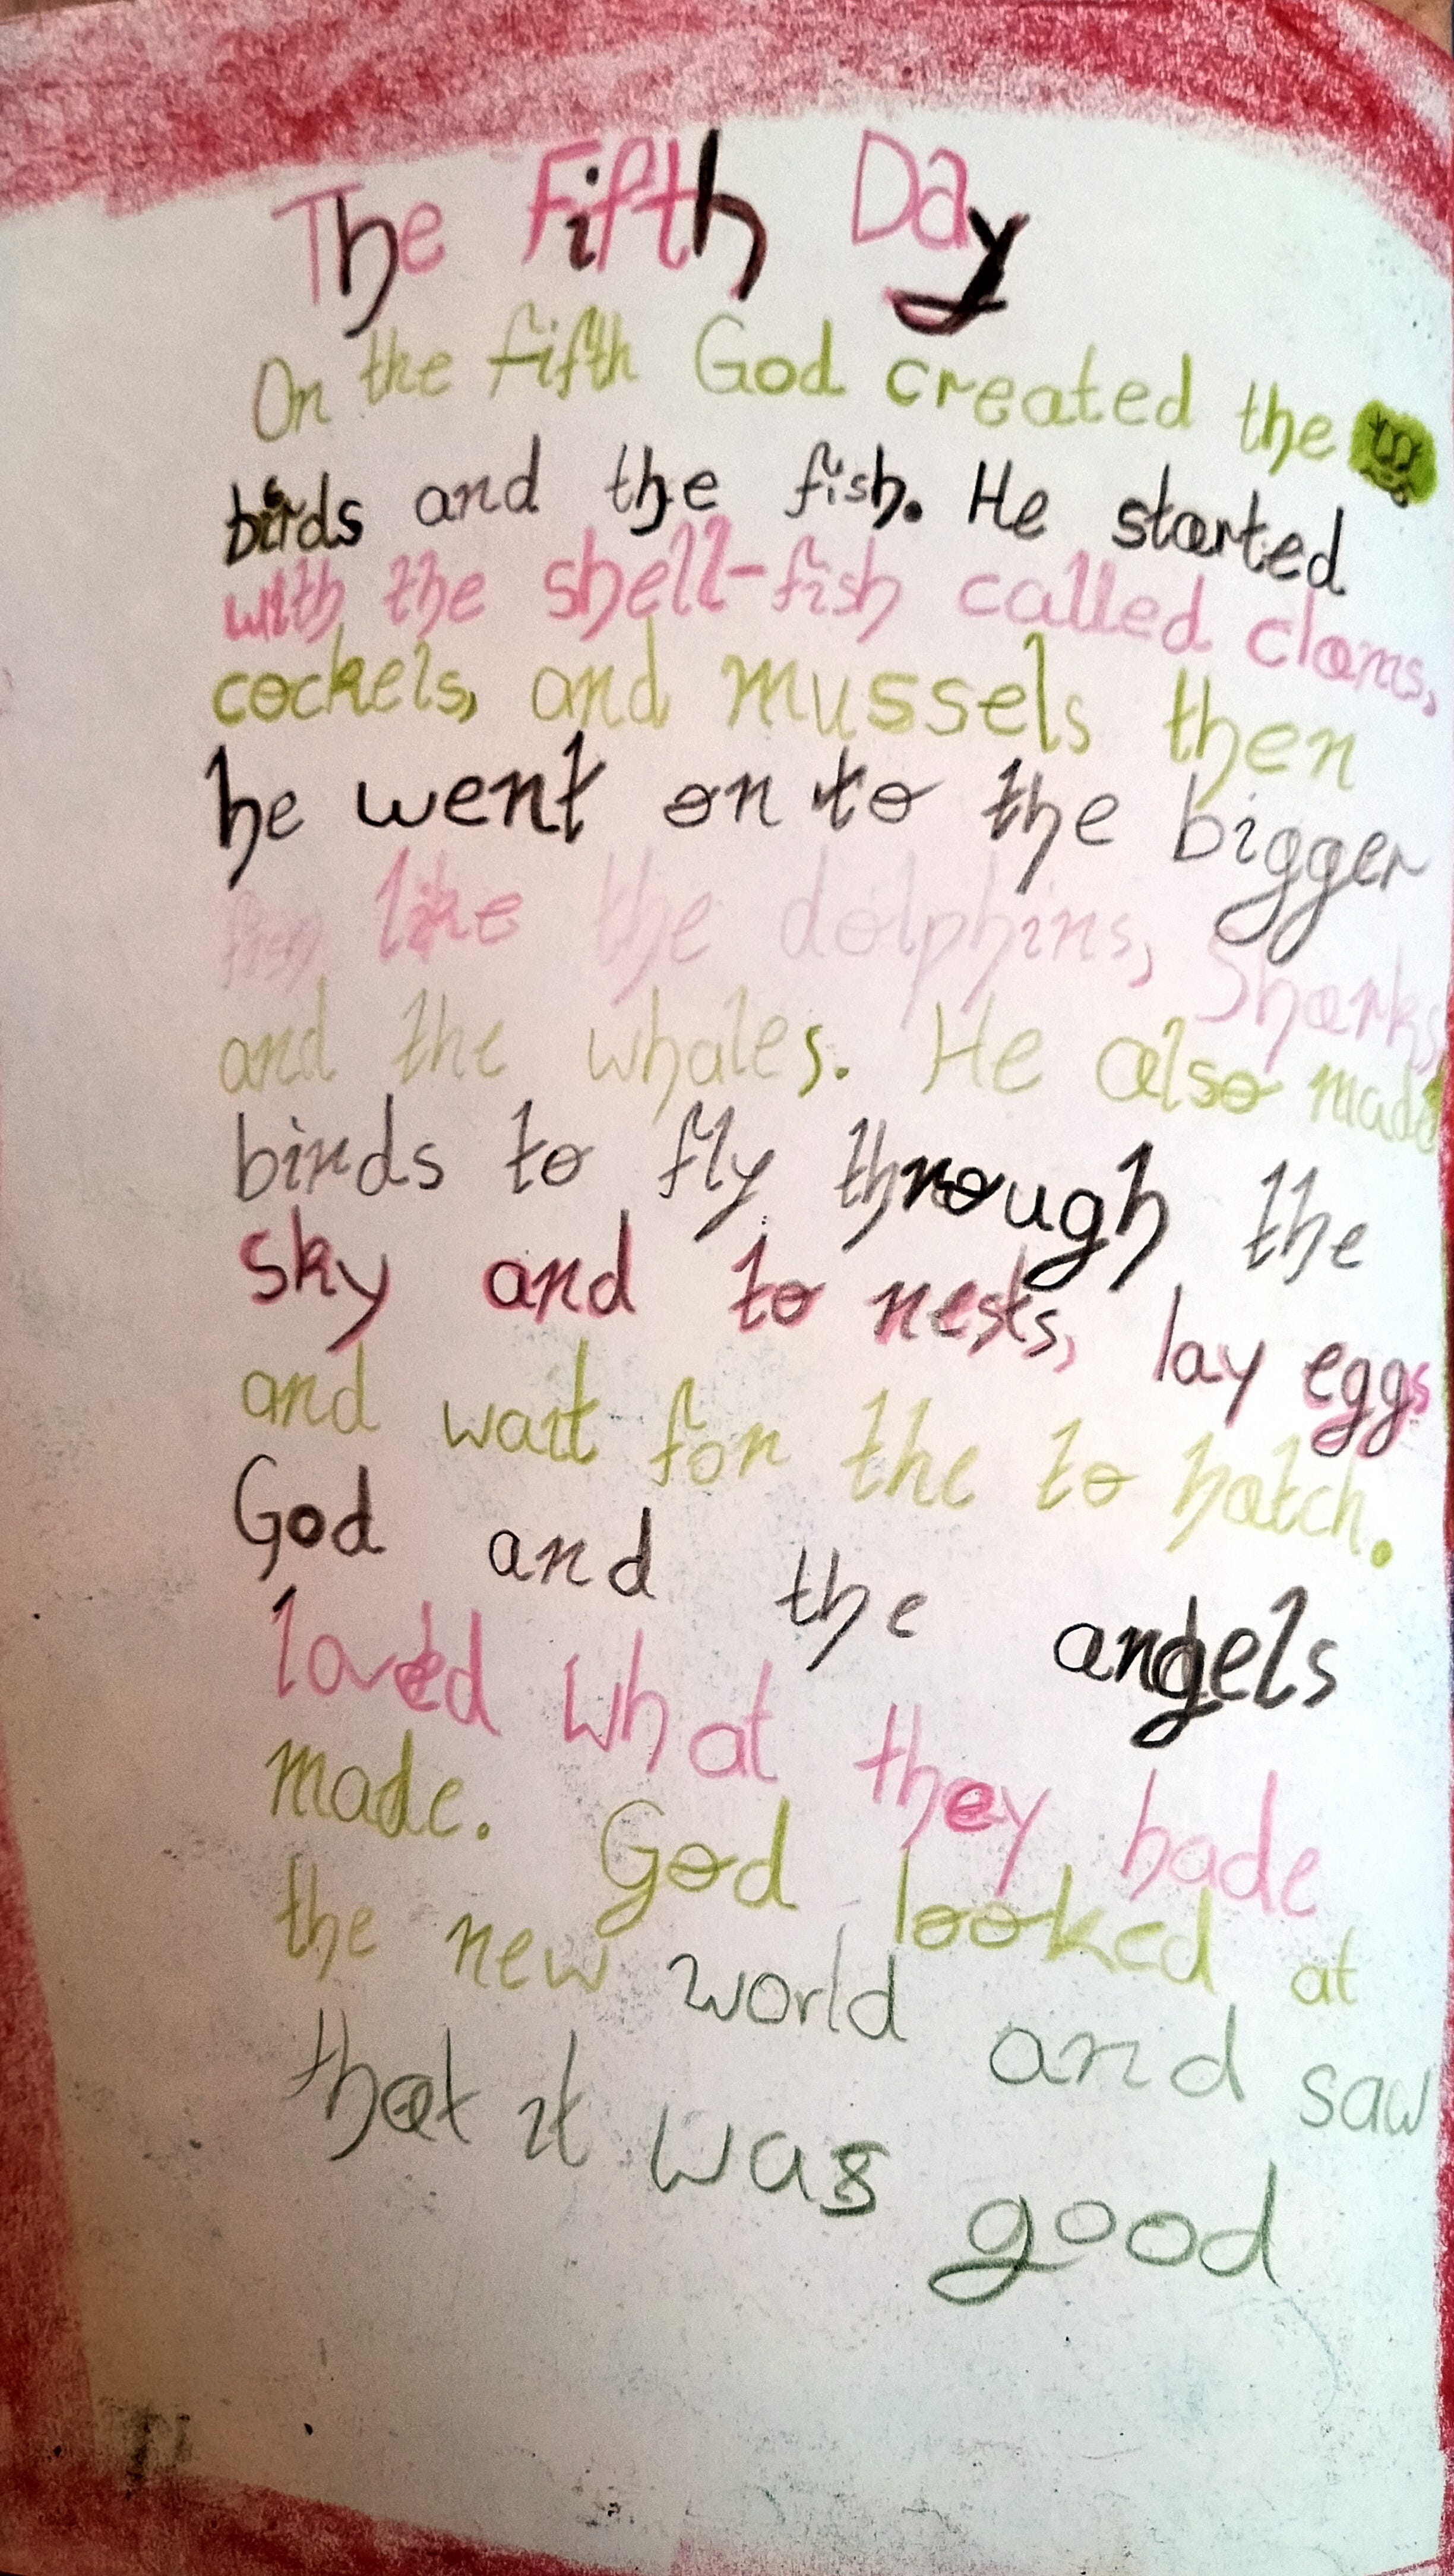 The Fifth Day
On the fifth God created the
birds and the fish. He started
with the shell-fish called clams,
cockels, and mussels then
he went on to the bigger
fish like the dolphins, Sharks
and the whales. He also made
birds to fly through the
sky and to nests, lay eggs
and wait for the to hatch.
God and the angels
loved what they hade
made. God looked at
the new world and saw
that it was good